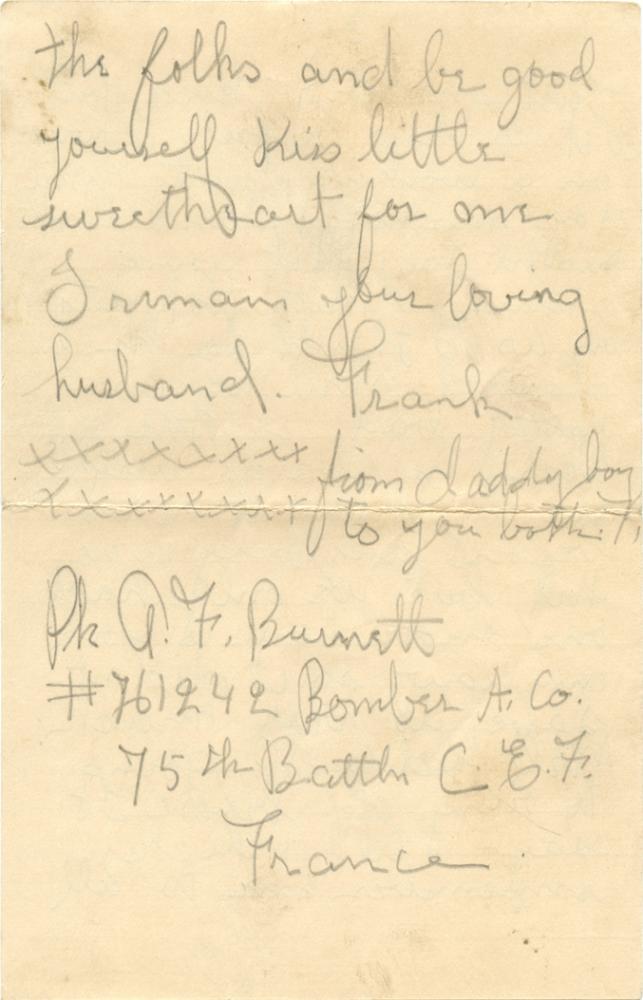 the folks and be good
yourself Kiss little
sweetheart for me
I remain your loving
husband. Frank
xxxxxxxxx from daddy boy
xxxxxxxxx to you both. F.
Pte A. F. Burnett
#761242 Bomber A. Co.
75th Battln C. E. F.
France.